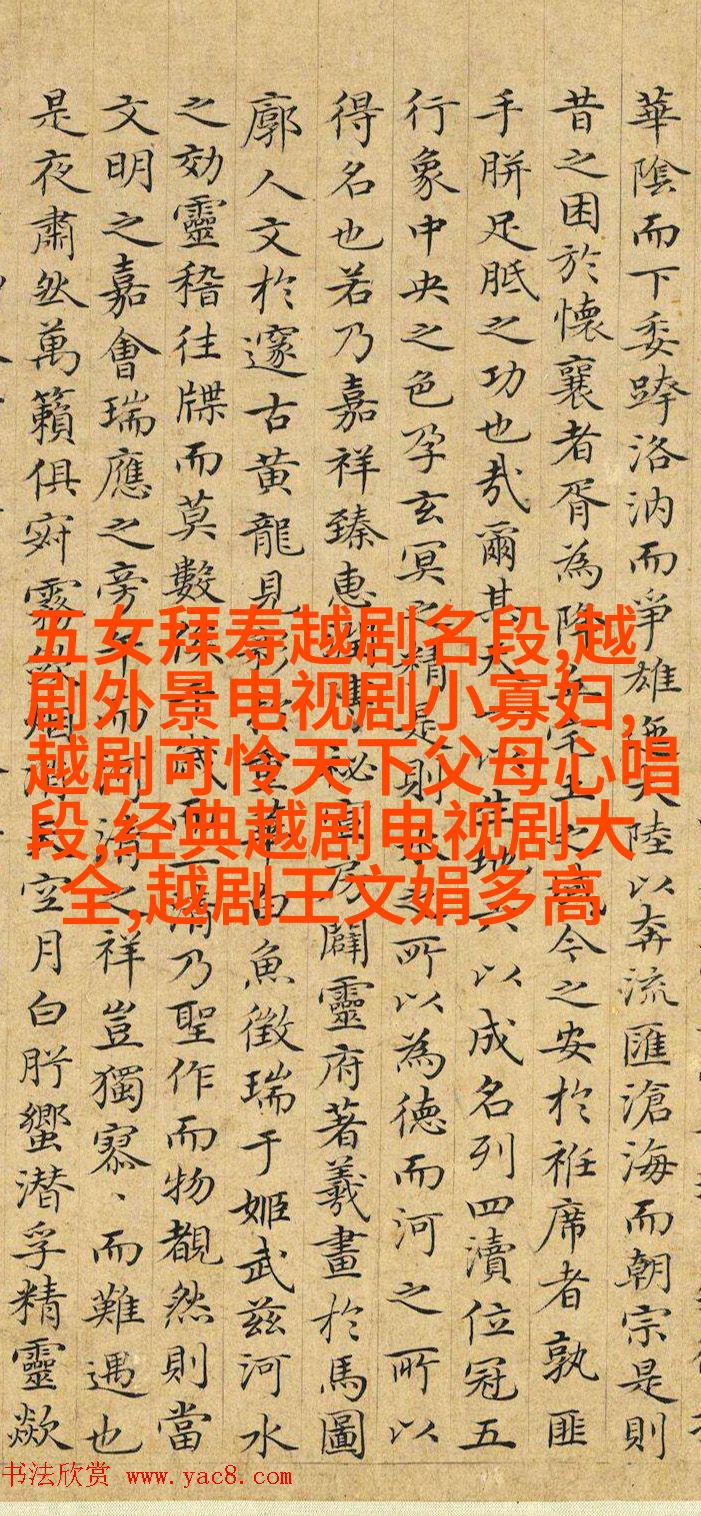 五女拜寿越剧名段,越
剧外景电视剧小寡妇,
越剧可怜天下父母心唱
段,经典越剧电视剧大
全,越剧王文娟多高
華陰而下委跨洛汭而爭雄迤大陸以奔流匯滄海而朝宗是則
昔之困於懷襄者胥為降丘宅土之氓今之安於袵席者孰匪
手胼足胝之功也㢤爾其天一以生地六以成名列四瀆位冠五
行象中央之色孕玄冥之精是則水之所以為德而河之所以
得名也若乃嘉祥臻惠秘房闢靈府著羲畫於馬圖
廓人文於邃古黃龍見金華白魚徵瑞于姬武茲河水
之効靈稽往牒而莫數候千歲而一清乃聖作而物覩然則當
文明之嘉會瑞應之旁午而河清之祥豈獨寥、而難遇也
是夜肅然萬籟俱寂霧斂烟消天空月白肸蠁潛孚精靈歘
书法欣赏 www.yac8.com